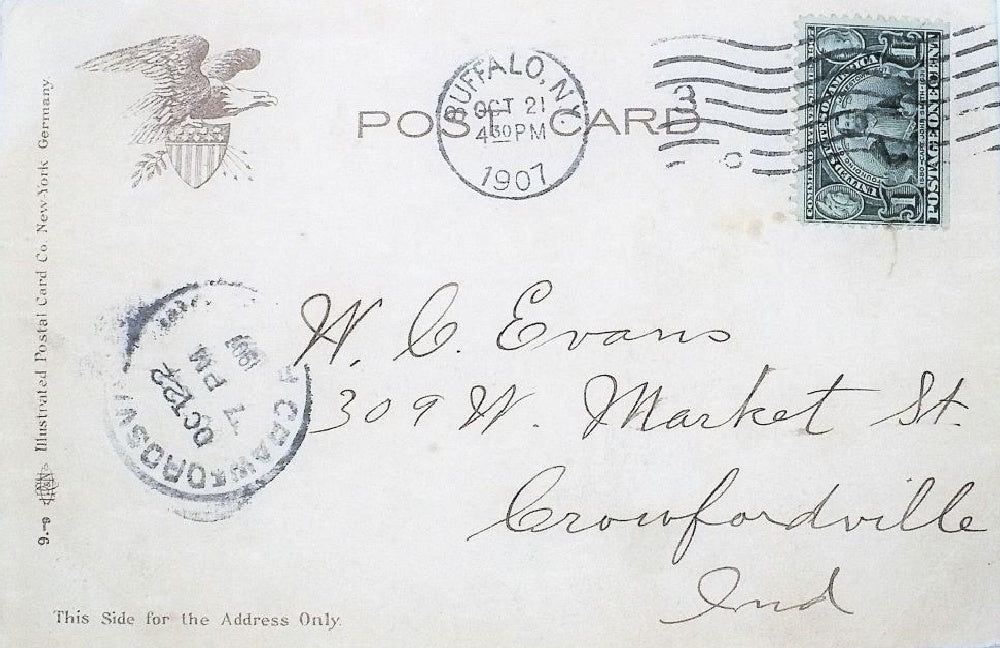 POST CARD
BUFFALO, N.Y.
OCT 21
4 30 PM
1907
3
POSTAGE ONE CENT
1
1
W. C. Evans
309 W. Market St.
Crowfordville
Ind
CRAWFORDSVI
OCT 22
7 PM
1907
Illustrated Postal Card Co. New-York Germany.
9.-9
This Side for the Address Only.